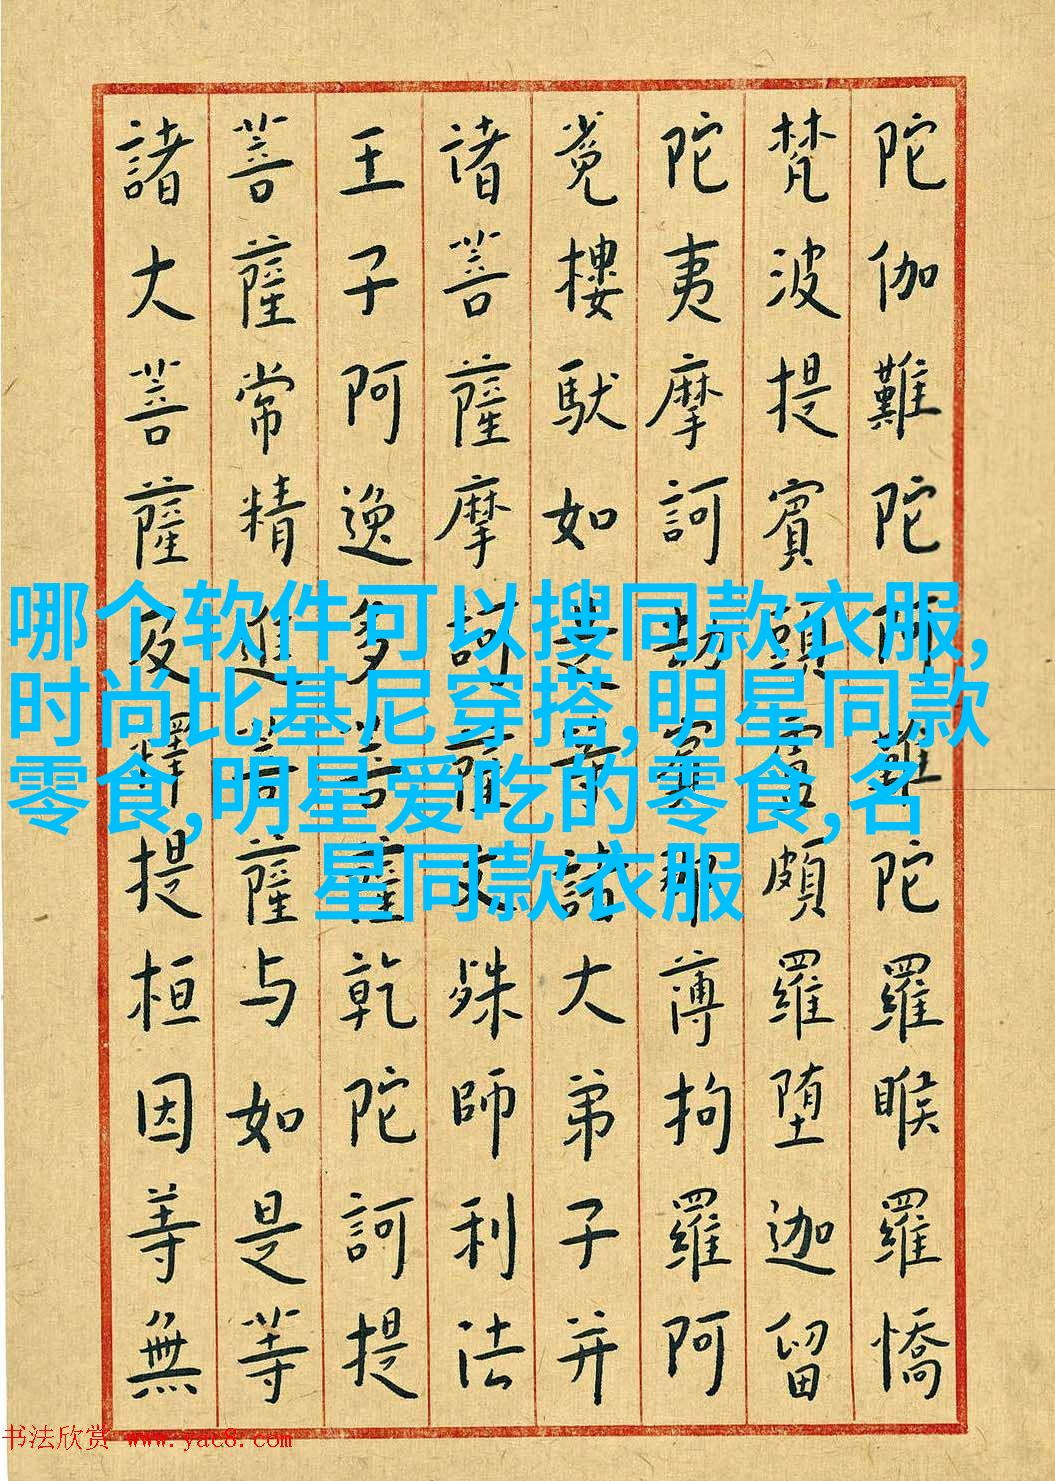 陀伽難陀阿難陀羅睺羅憍
梵波提賓頭盧頗羅堕迦留
陀夷摩訶劫賓那薄拘羅阿
㝹樓馱如是等諸大弟子并
诸菩薩摩訶薩文殊師利法
王子阿逸多菩薩乾陀訶提
菩薩常精進菩薩与如是等
諸大菩薩及釋提桓因等無
哪个软件可以搜同款衣服,
时尚比基尼穿搭,明星同款
零食,明星爱吃的零食,名
星同款衣服
书法欣赏 www.yac8.com